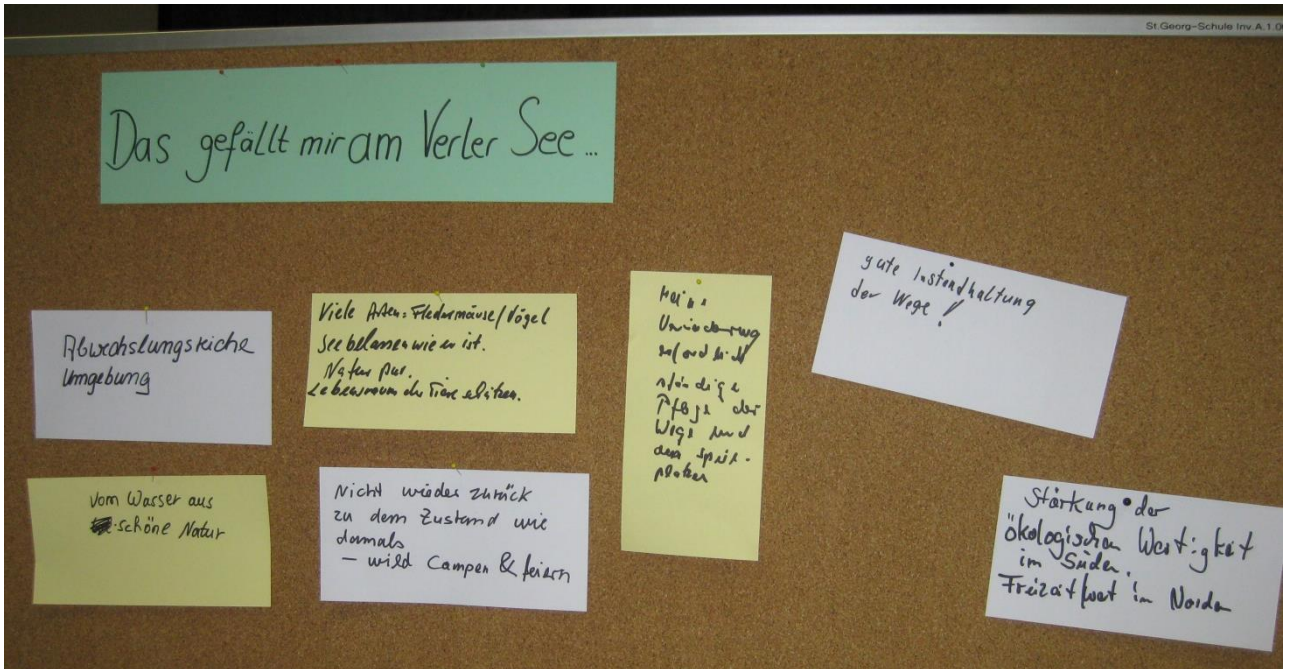 St.Georg-Schule Inv.A.1.0
Das gefällt mir am Verler See...
Abwechslungsreiche
Umgebung
Viele Arten: Fledermäuse/Vögel
See belassen wie er ist.
Natur pur.
Lebensraum der Tiere schützen.
Keine
Veränderung
erforderlich
ständige
Pflege der
Wege und
des Spiel-
platzes
gute Instandhaltung
der Wege!
vom Wasser aus
schöne Natur
Nicht wieder zurück
zu dem Zustand wie
damals
– wild Campen & feiern
Stärkung der
ökologischen Wertigkeit
im Süden.
Freizeitwert im Norden